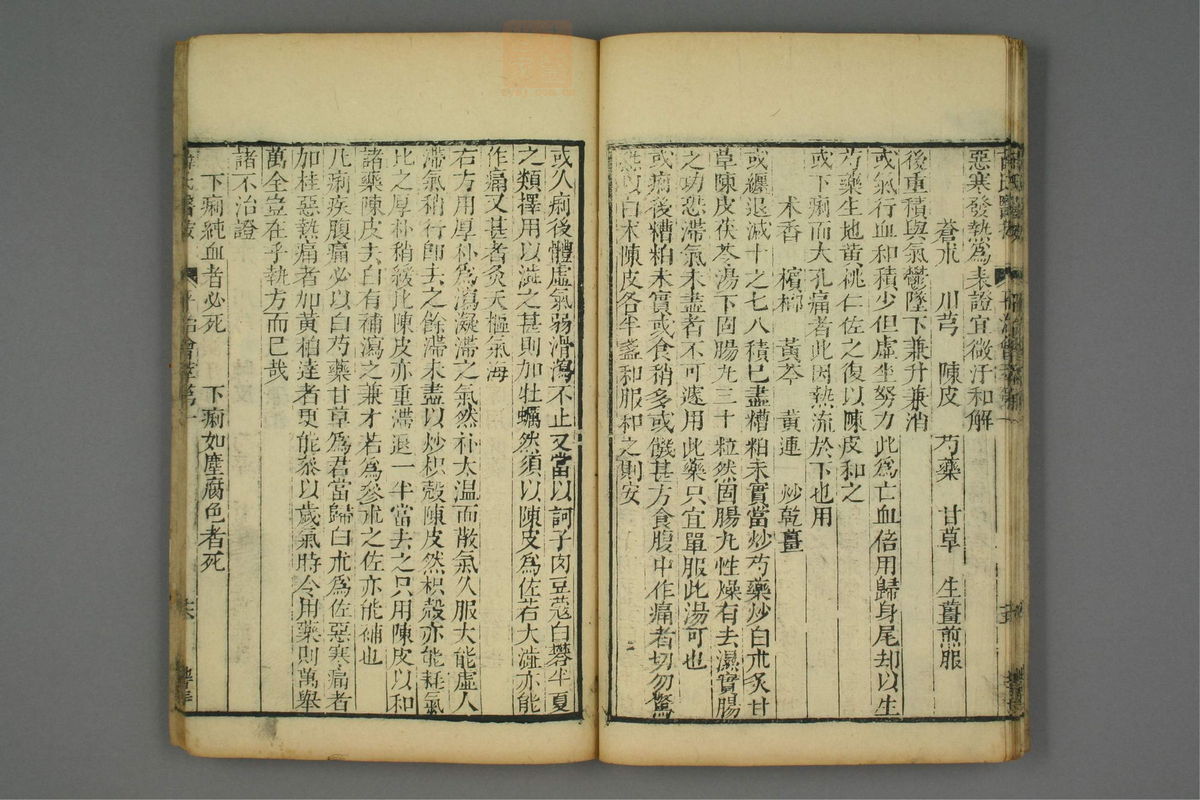 惡寒發熱爲表證宜微汗和解
蒼朮 川芎 陳皮 芍藥 甘草 生薑煎服
後重積與氣鬱墜下兼升兼消
或氣行血和積少但虛坐努力此爲亡血倍用歸身尾却以生
芍藥生地黃桃仁佐之復以陳皮和之
或下痢而大孔痛者此因熱流於下也用
木香 檳榔 黃芩 黃連 炒乾薑
或纏退減十之七八積已盡糟粕未實當炒芍藥炒白朮炙甘
草陳皮茯苓湯下固腸丸三十粒然固腸丸性燥有去濕實腸
之功恐滯氣未盡者不可遽用此藥只宜單服此湯可也
或痢後糟粕未實或食稍多或饑甚方食腹中作痛者切勿驚
以白朮陳皮各半盞和服和之則安
或久痢後體虛氣弱滑瀉不止又當以訶子肉豆蔻白礬半夏
之類擇用以澁之甚則加牡蠣然須以陳皮爲佐若大澁亦能
作痛又甚者灸天樞氣海
右方用厚朴爲瀉凝滯之氣然朴大温而散氣久服大能虛人
滯氣稍行卽去之餘滯未盡以炒枳殼陳皮然枳殼亦能耗氣
比之厚朴稍緩比陳皮亦重滯退一半當去之只用陳皮以和
諸藥陳皮去白有補瀉之兼才若爲參朮之佐亦能補也
凢痢疾腹痛必以白芍藥甘草爲君當歸白朮爲佐惡寒痛者
加桂惡熱痛者加黃栢達者更能叅以歲氣時令用藥則萬舉
萬全豈在乎執方而巳哉
諸不治證
下痢純血者必死 下痢如塵腐色者死